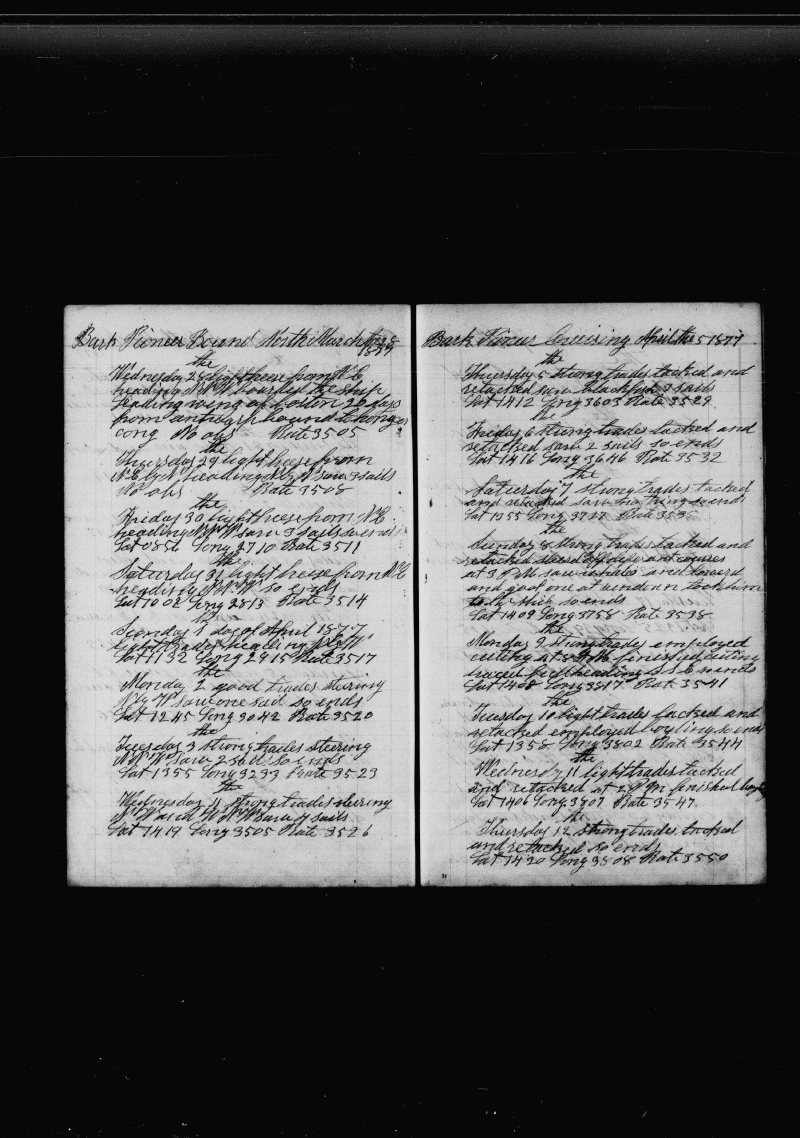 Bark Pioneer Bound North March the 28
1877
the
Wednesday 28 light breese from N E
heading N N W boarded the ship
leading wing of boston 26 days
from bound to hong
cong No obs Rate 3505
the
Thursday 29 light breese from
N E heading N W saw 3 sails
No obs Rate 3508
the
Friday 30 light breese from N E
heading N N W saw 3 sails so ends
Lat 0856 Long 2710 Rate 3511
the
Saturday 31 light breese from N E
heading N N W so ends
Lat 1002 Long 2813 Rate 3514
the
Sunday 1 day of April 1877
light trades heading N by W
Lat 1132 Long 2915 Rate 3517
the
Monday 2 good trades steering
N by W saw one sail so ends
Lat 1245 Long 3042 Rate 3520
the
Tuesday 3 strong trades steering
N N W saw 2 sail so ends
Lat 1355 Long 3233 Rate 3523
the
Wednesday 4 strong trades steering
N W and W N W saw 4 sails
Lat 1419 Long 3505 Rate 3526
Bark Pioneer Cruising April the 5 1877
the
Thursday 5 strong trades tacked and
retacked saw blackfish 3 sails
Lat 1412 Long 3603 Rate 3529
the
Friday 6 strong trades tacked and
retacked saw 2 sails so ends
Lat 1416 Long 3646 Rate 3532
the
Saturday 7 strong trades tacked
and retacked saw nothing so ends
Lat 1355 Long 3728 Rate 3535
the
Sunday 8 strong trades tacked and
retacked steared off different courses
at 3 P M saw whales and lowerd
and got one at sundown took him
to the ship so ends
Lat 1409 Long 3758 Rate 3538
the
Monday 9 strong trades employed
cutting at P M finished cutting
braced full heading so ends
Lat 1408 Long 3817 Rate 3541
the
Tuesday 10 light trades tacked and
retacked employed boyling so ends
Lat 1358 Long 3802 Rate 3544
the
Wednesday 11 light trades tacked
and retacked at 2 P M finished boyling
Lat 1406 Long 3807 Rate 3547
the
Thursday 12 strong trades tacked
and retacked so ends
Lat 1420 Long 3808 Rate 3550